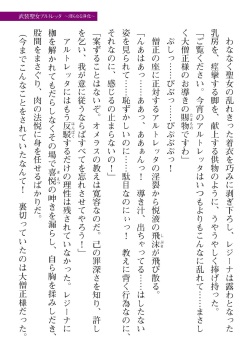 武装聖女アルトレッタ
わななく聖女の乱れきった着衣を巧みに剥ぎ下ろし、レジーナは露わとなった
乳房を、痙攣する脚を、献上する供物のように、うやうやしく捧げ持った。
「ご覧ください。今宵のアルトレッタはいつもよりもこんなに乱れて……まさし
く大僧正様のお導きの賜物ですわ」
ぶしっ……ぶしっ……びぶぶぶっ!
僧正の座に正対するアルトレッタの淫裂から悦液の飛沫が飛び散る。
「んあはあっ……ふぁあっ、導き汁、出ちゃってる……はしたない
姿を見られて……恥ずかしいのに……駄目なのにいっ! 教えに背く行為なのに、
それなのに、感じるの止まらないのっ!」
「案ずることはないぞ。オオラスの教えは寛容なのだ。己の罪深さを知り、許し
を乞う、我が意に従うならばすべてを忘れさせてやろう!」
アルトレッタにはもう反駁するだけの理性は残されていなかった。レジーナに
枷を解かれてもだらしなくその場で喜悦の呻きを漏らし、自ら胸を揉みしだき、
股間をまさぐり、肉の法悦に身を任せるばかりだ。
(今までこんなことをされていたなんて! 裏切っていたのは大僧正様だった。